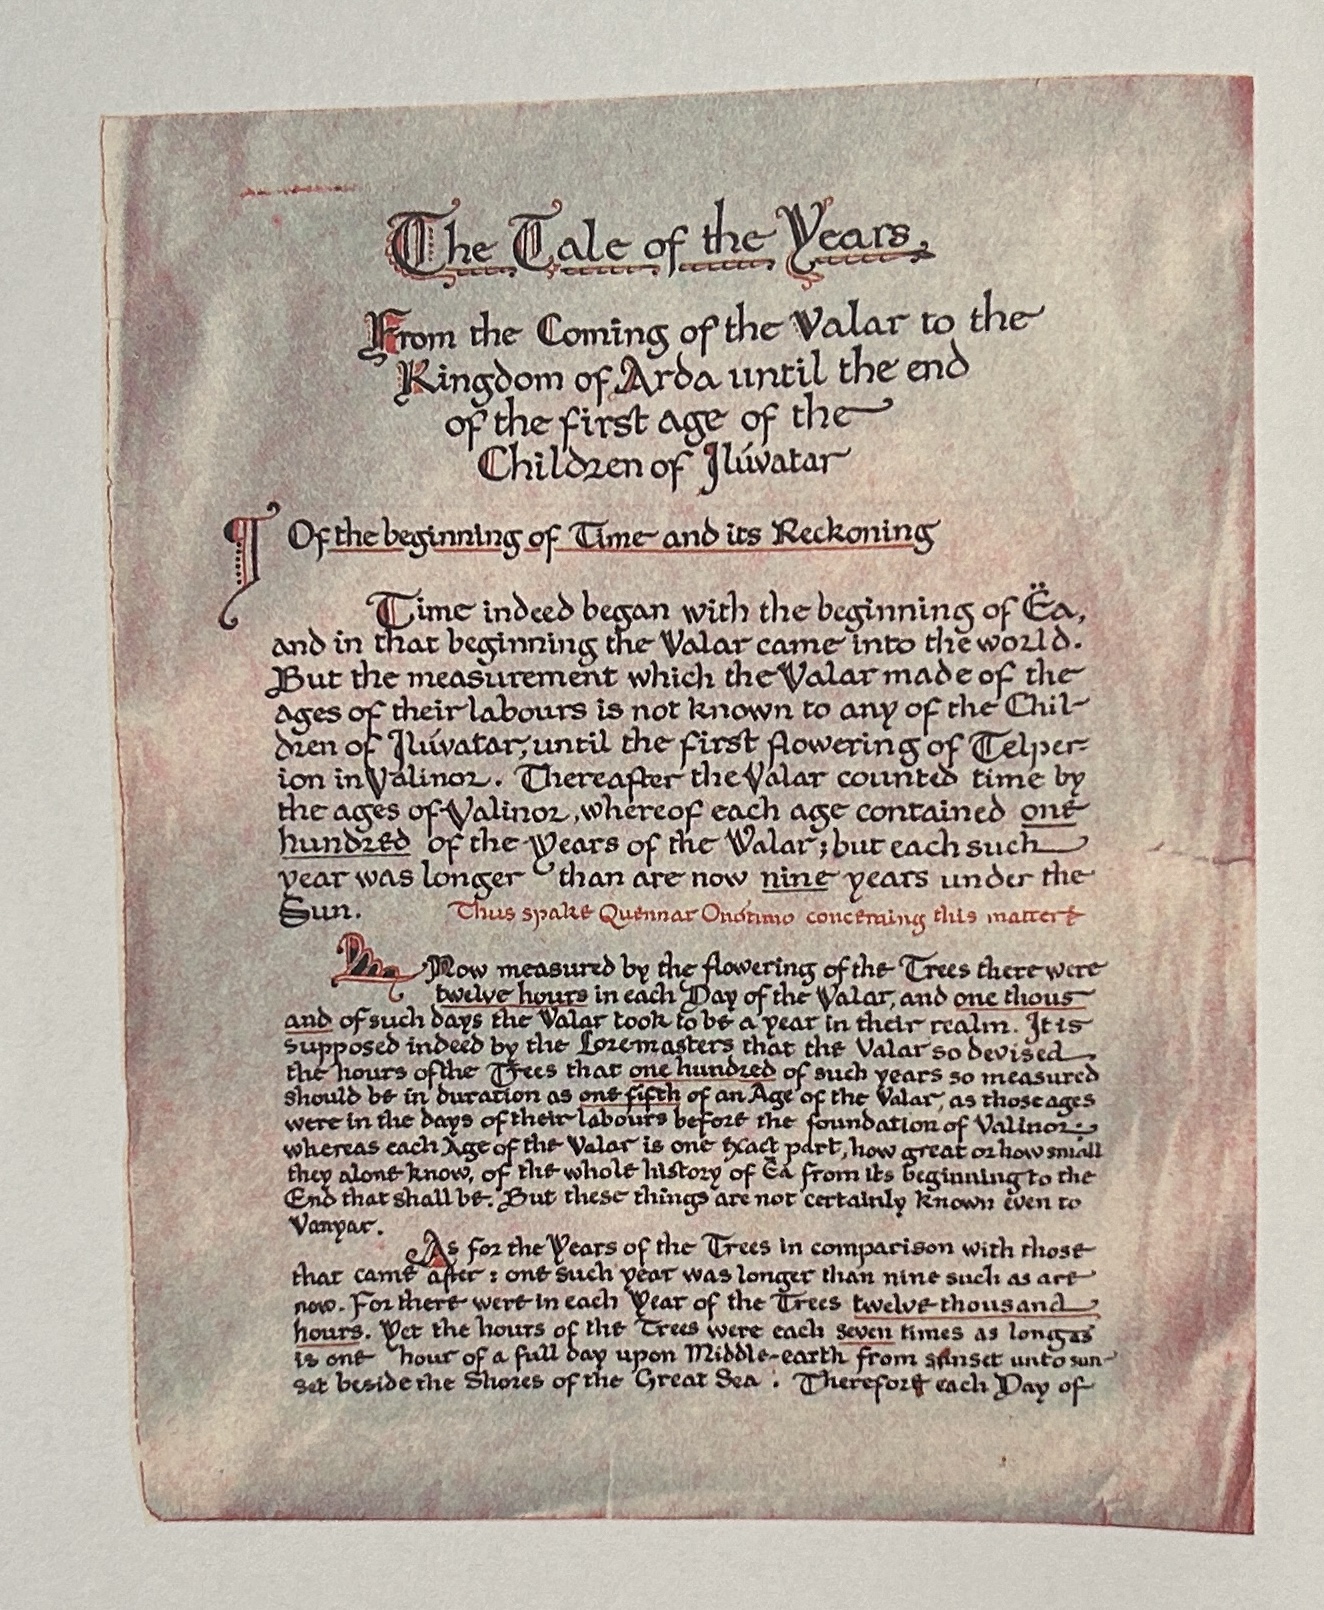 The Tale of the Years,
From the Coming of the Valar to the
Kingdom of Arda until the end
of the first age of the
Children of Ilúvatar
¶ Of the beginning of Time and its Reckoning
Time indeed began with the beginning of Ëa,
and in that beginning the Valar came into the world.
But the measurement which the Valar made of the
ages of their labours is not known to any of the Chil-
dren of Ilúvatar, until the first flowering of Telper-
ion in Valinor. Thereafter the Valar counted time by
the ages of Valinor, whereof each age contained one
hundred of the Years of the Valar; but each such
year was longer than are now nine years under the
Sun. Thus spake Quennar Onótimo concerning this matter
Now measured by the flowering of the Trees there were
twelve hours in each Day of the Valar, and one thous
and of such days the Valar took to be a year in their realm. It is
supposed indeed by the Lore-masters that the Valar so devised
the hours of the Trees that one hundred of such years so measured
should be in duration as one fifth of an Age of the Valar, as those ages
were in the days of their labours before the foundation of Valinor:
whereas each Age of the Valar is one exact part, how great or how small
they alone know, of the whole history of Ëa from its beginning to the
End that shall be. But these things are not certainly known even to
Vanyar.
As for the Years of the Trees in comparison with those
that came after: one such year was longer than nine such as are
now. For there were in each Year of the Trees twelve thousand
hours. Yet the hours of the Trees were each seven times as long as
is one hour of a full day upon Middle-earth from sunset unto sun-
set beside the Shores of the Great Sea. Therefore each Day of